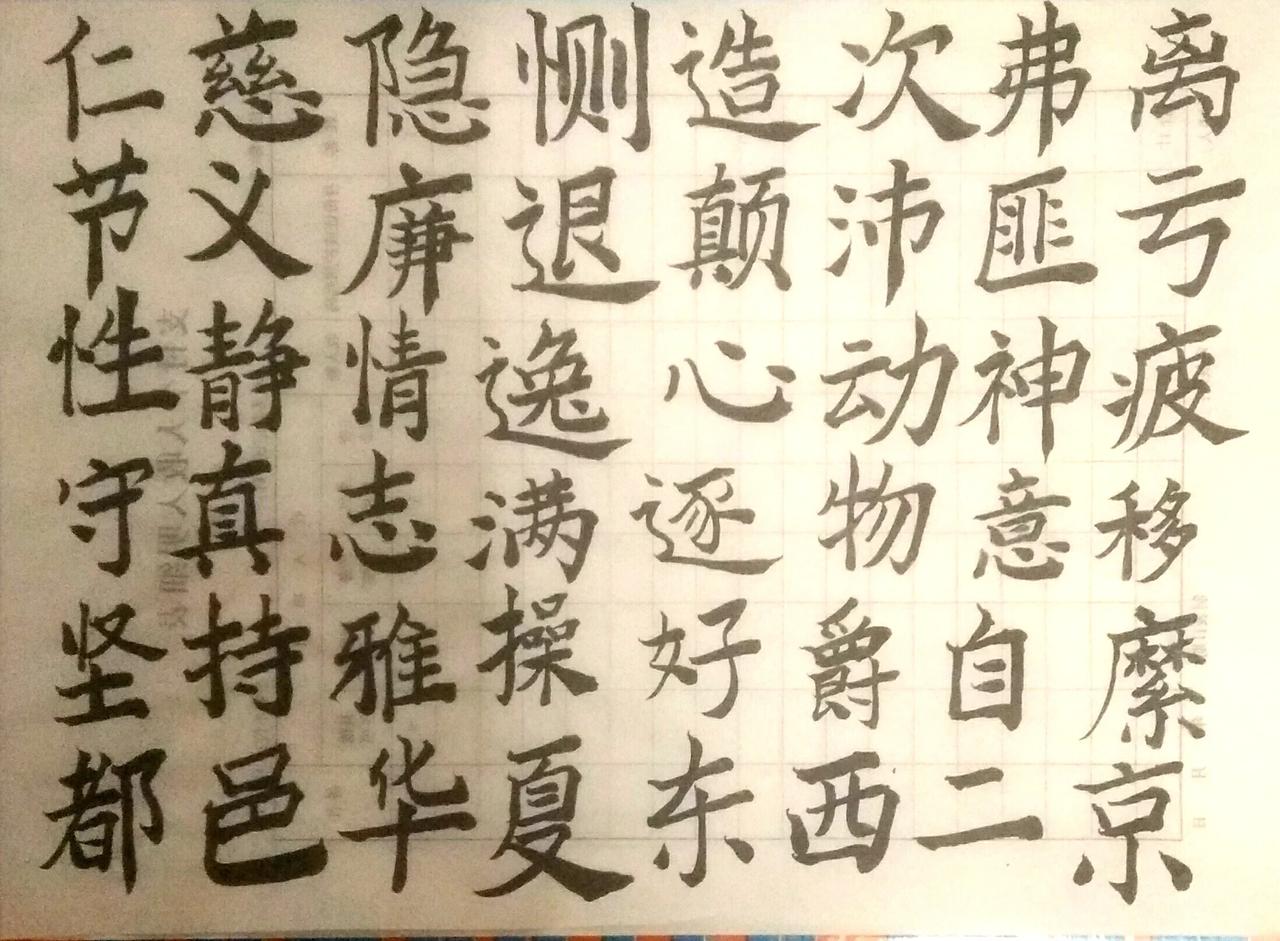 仁慈隐恻造次弗离
节义廉退颠沛匪亏
性静情逸心动神疲
守真志满逐物意移
坚持雅操好爵自縻
都邑华夏东西二京